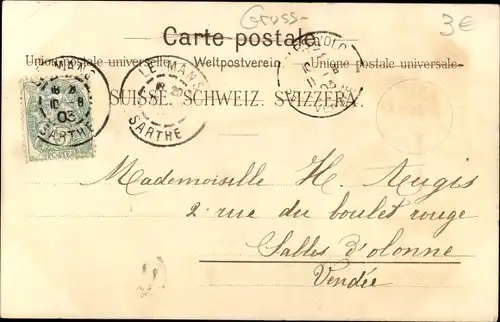 Gruss-
3€
Carte postale.
Union postale universelle. Weltpostverein. Unione postale universale.
SUISSE. SCHWEIZ. SVIZZERA.
LE MANS
10 - 8
03
SARTHE
LE MANS
SARTHE
03
Mademoiselle H. Augis
2 rue du boulet rouge
Salles d'olonne
Vendée